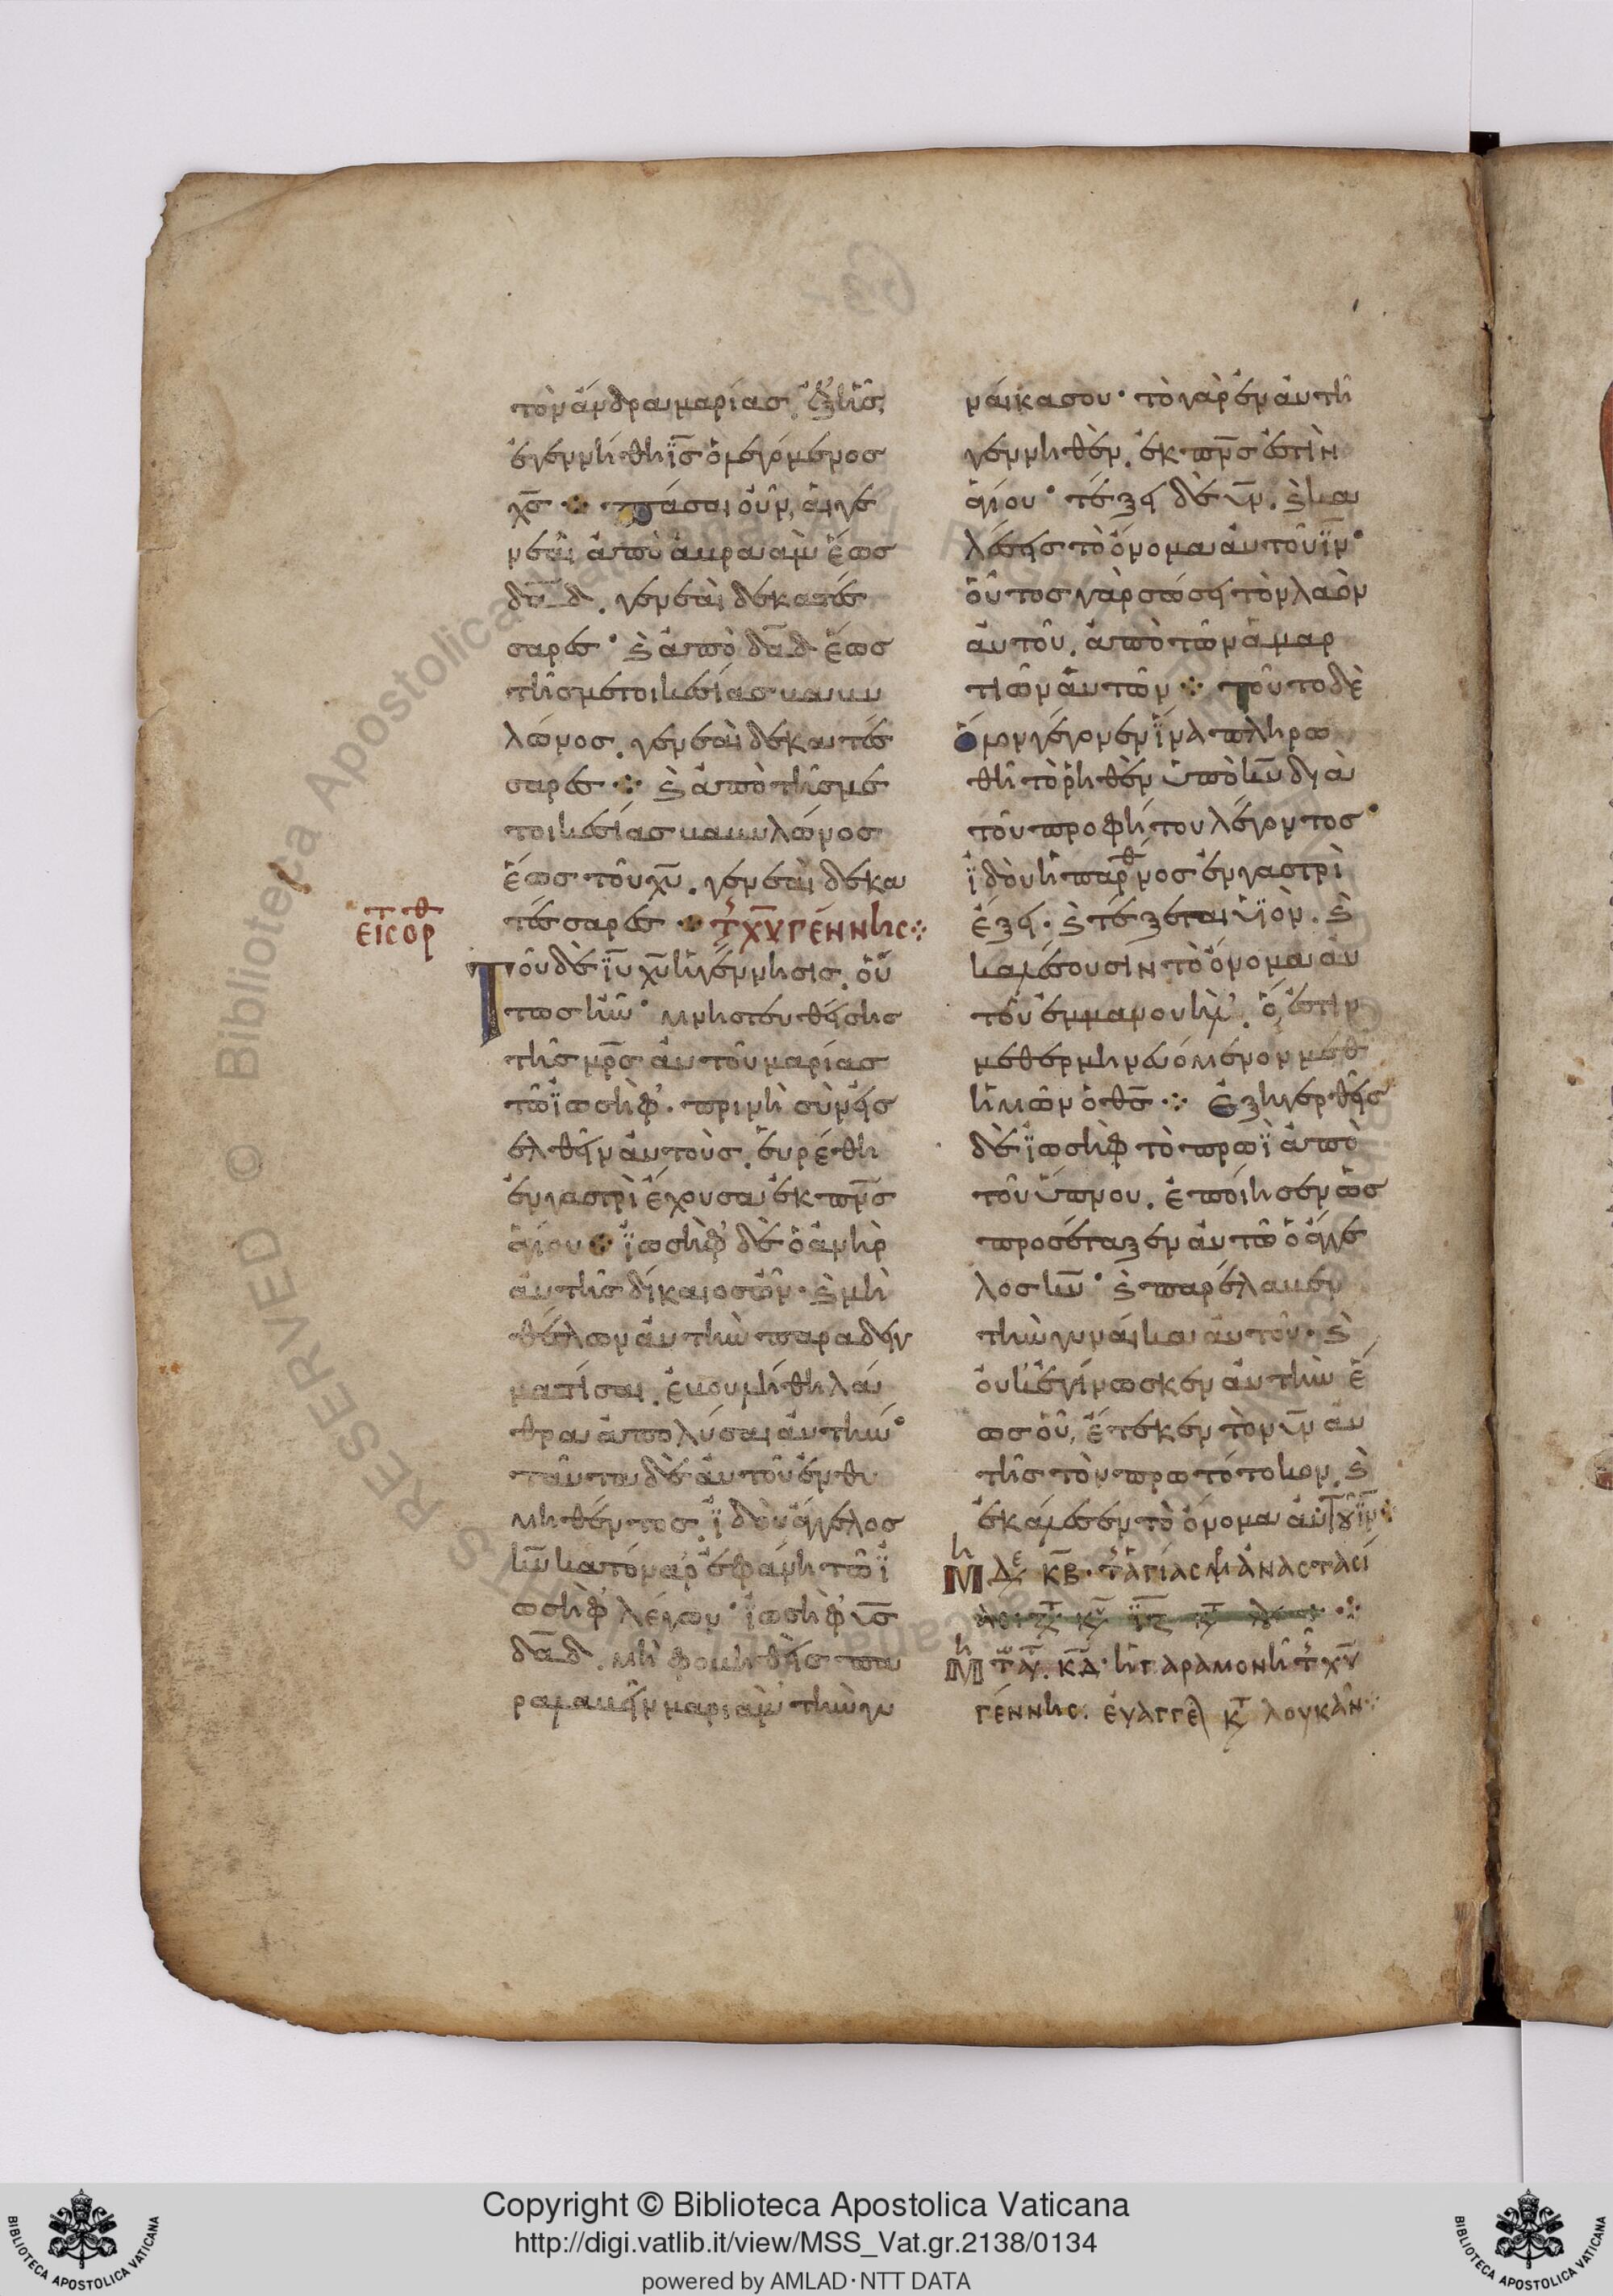 τὸν ἄνδρα μαρίας, ἐξ ἧς
ἐγεννήθη ις̅ ὁ λεγόμενος
χς̅ · πᾶσαι οὖν, αἱ γε
νεαὶ ἀπὸ ἀβραὰμ ἕως
δα̅δ. γενεαὶ δεκατέσ
σαρες· ϗ ἀπὸ δα̅δ ἕως
τῆς μετοικεσίας βαβυ
λῶνος. γενεαὶ δεκατέσ
σαρες· ϗ ἀπὸ τῆς με
τοικεσίας βαβυλῶνος
ἕως τοῦ χυ̅. γενεαὶ δεκα
τέσσαρες· τ χυ̅ γέννης
εἰς ορθ
Τοῦ δὲ ιυ̅ χυ̅ ἡ γέννησις, οὕ
τως ἦν· μνηστευθείσης
τῆς μρς̅ αὐτοῦ μαρίας
τῶ ἰωσήφ. πρινὴ συνεισ
ελθεῖν αὐτοὺς, εὑρέθη
ἐν γαστρὶ ἔχουσα ἐκ πνς̅
ἁγίου· ἰωσὴφ δὲ ὁ ἀνὴρ
αὐτῆς δίκαιος ὢν. ϗ μὴ
θέλων αὐτὴν παραδειγ
ματίσαι, ἐβουλήθη λά
θρα ἀπολῦσαι αὐτήν·
ταῦτα δὲ αὐτοῦ ἐνθυ
μηθέντος, ἰδοὺ ἄγγελος
κυ̅ κατόναρ ἐφάνη τῶ ἰ
ωσὴφ λέγων· ἰωσὴφ υς̅
δα̅δ. μὴ φοβηθεὶς πα
ραλαβεῖν μαριὰμ τὴν γυ
ναῖκα σου· τὸ γὰρ ἐν αὐτῆ
γεννηθὲν, ἐκ πνς̅ ἐστὶν
ἁγίου· τέξει δὲ υν̅. ϗ κα
λέσεις τὸ ὄνομα αὐτοῦ ιν̅·
οὗτος γὰρ σώσει τὸν λαὸν
αὐτοῦ, ἀπὸ τῶν ἁμαρ
τιῶν αὐτῶν· τοῦτο δὲ
ὅλον γέγονεν ἵνα πληρω
θῆ τὸ ῥηθὲν ὑπὸ κυ̅ διὰ
τοῦ προφήτου λέγοντος·
ἰδοὺ ἡ παρθνος ἐν γαστρὶ
ἕξει. ϗ τέξεται υἱὸν. ϗ
καλέσουσιν τὸ ὄνομα αὐ
τοῦ ἐμμανουὴλ. ὅ ἐστιν
μεθερμηνευόμενον μεθ
ἡμῶν ὁ θς̅· ἐξηγερθεὶς
δὲ ἰωσὴφ τὸ πρωὶ ἀπὸ
τοῦ ὕπνου, ἐποίησεν ὡς
προσέταξεν αὐτῶ ὁ ἄγγε
λος κυ̅· ϗ παρέλαβεν
τὴν γυναῖκα αὐτοῦ. ϗ
οὐκ ἐγίνωσκεν αὐτὴν ἕ
ως οὗ, ἔτεκεν τὸν υν̅ αὐ
τῆς τὸν πρωτότοκον. ϗ
ἐκάλεσεν τὸ ὄνομα αὐτοῦ ιν̅
κβ̅· τ ἁγίας μ ἀναστασί
κδ̅· ἡ παραμονὴ τ χυ̅
γέννης. εὐαγγελ κτ λουκᾶν
Copyright © Biblioteca Apostolica Vaticana
http://digi.vatlib.it/view/MSS_Vat.gr.2138/0134
powered by AMLAD·NTT DATA
BIBLIOTECA APOSTOLICA VATICANA
BIBLIOTECA APOSTOLICA VATICANA